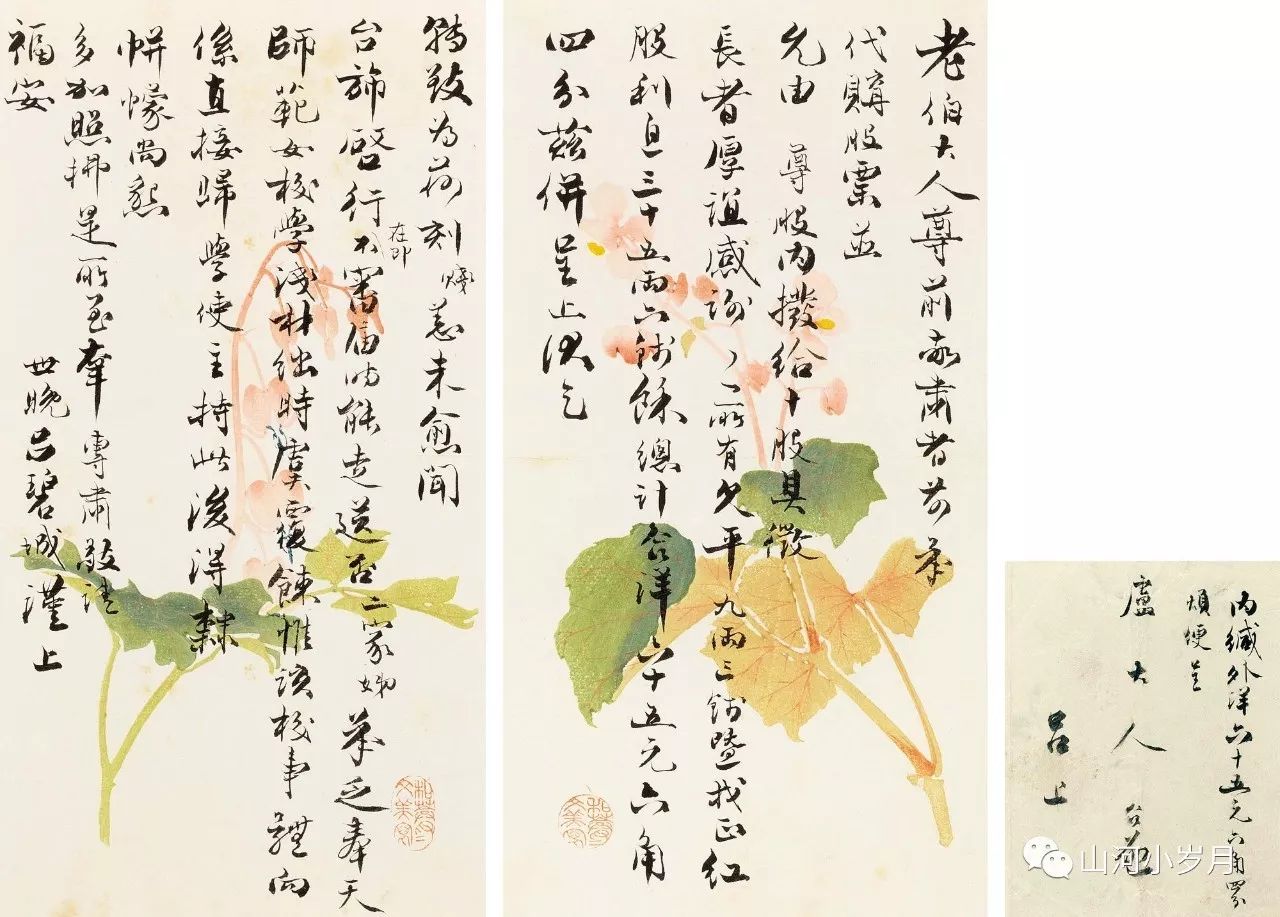 老伯大人尊前敬肅者前承
代購股票並
允由 尊股內撥給十股具徵
長者厚誼感謝〻所有欠平九兩三錢暨找正紅
股利息三十五兩六錢餘總計合洋六十五元六角
四分茲併呈上伏乞
轉致為荷刻賤恙未愈聞
台旆啓行在即不審屆時能走送否二家姊承乏奉天
師範女校學淺材絀時虞覆餗惟該校事體向
係直接歸學使主持此後得隸
帡幪尚懇
多加照拂是所至幸專肅敬請
福安
世晚呂碧城謹上
內緘外洋六十五元六角四分
煩便呈
盧大人台啟
呂上
山河小岁月